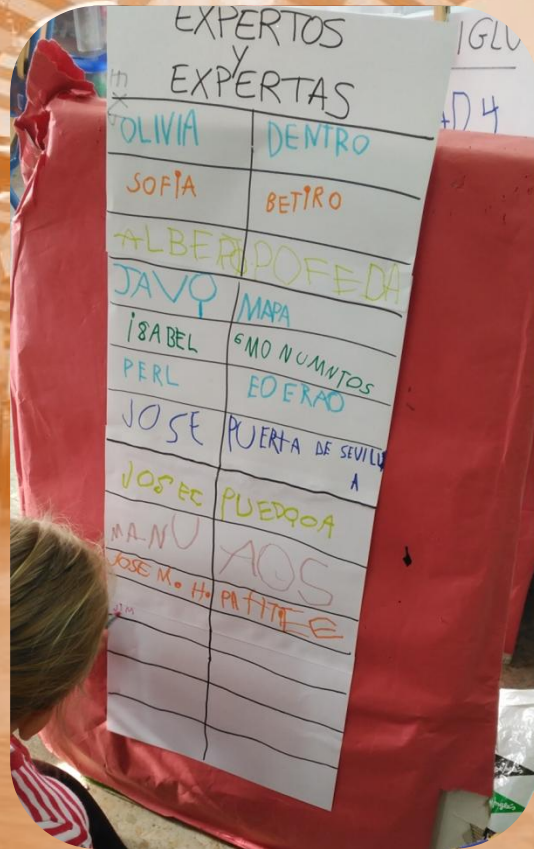 EXPERTOS
Y
EXPERTAS
OLIVIA DENTRO
SOFÍA BETIRO
ALBERO POFEDA
JAVO MAPA
ISABEL 6 MONUMNTOS
PERL EOERAO
JOSE PUERTA DE SEVILLA
A
JOSEC PUEDQOA
MANU AOS
JOSE M. H. PATITEE
IGLU